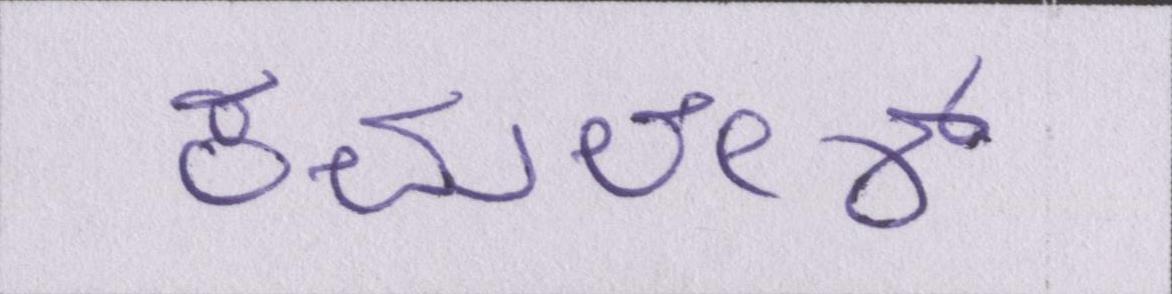 ಕಮಲೇಶ್